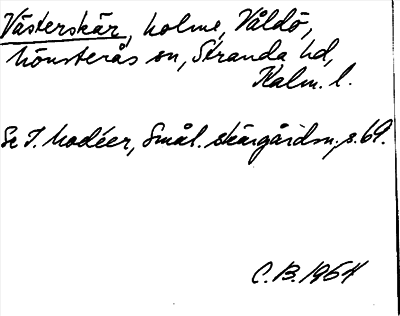 Västerskär, holme, Våldö,
Mönsterås sn, Stranda hd,
Kalm. l.
Se I. Modéer, Smål. skärgårdsn. s. 69.
C.B. 1964